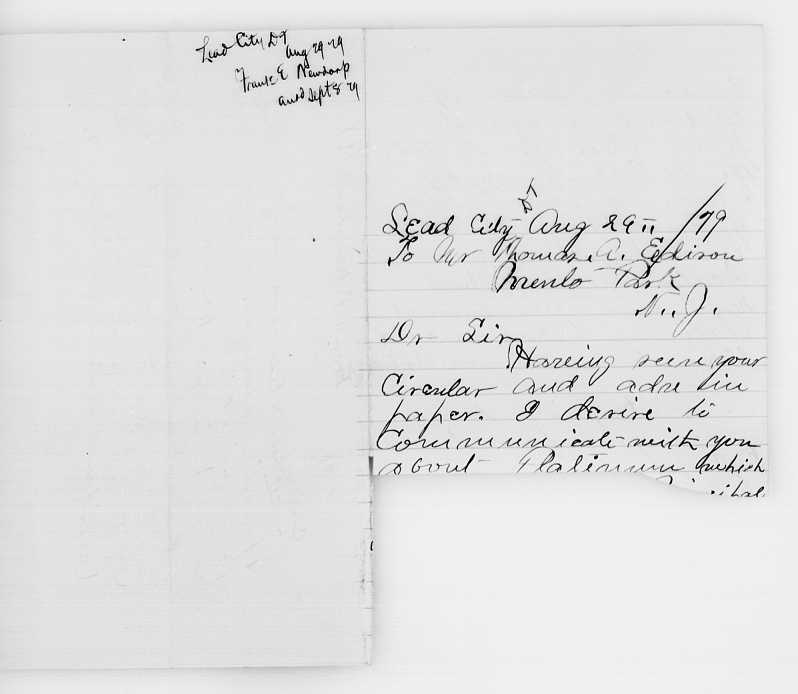 Lead City DT
Aug 29 79
Frank E
ansd Sept 8 79
DT
Lead City Aug 29 " /79
To Mr Thomas. A. Edison
Menlo Park
N.. J.
Dr Sir
Haveing seen your
Circular and adv in
paper. I desire to
Communicate with you
about Platinum which